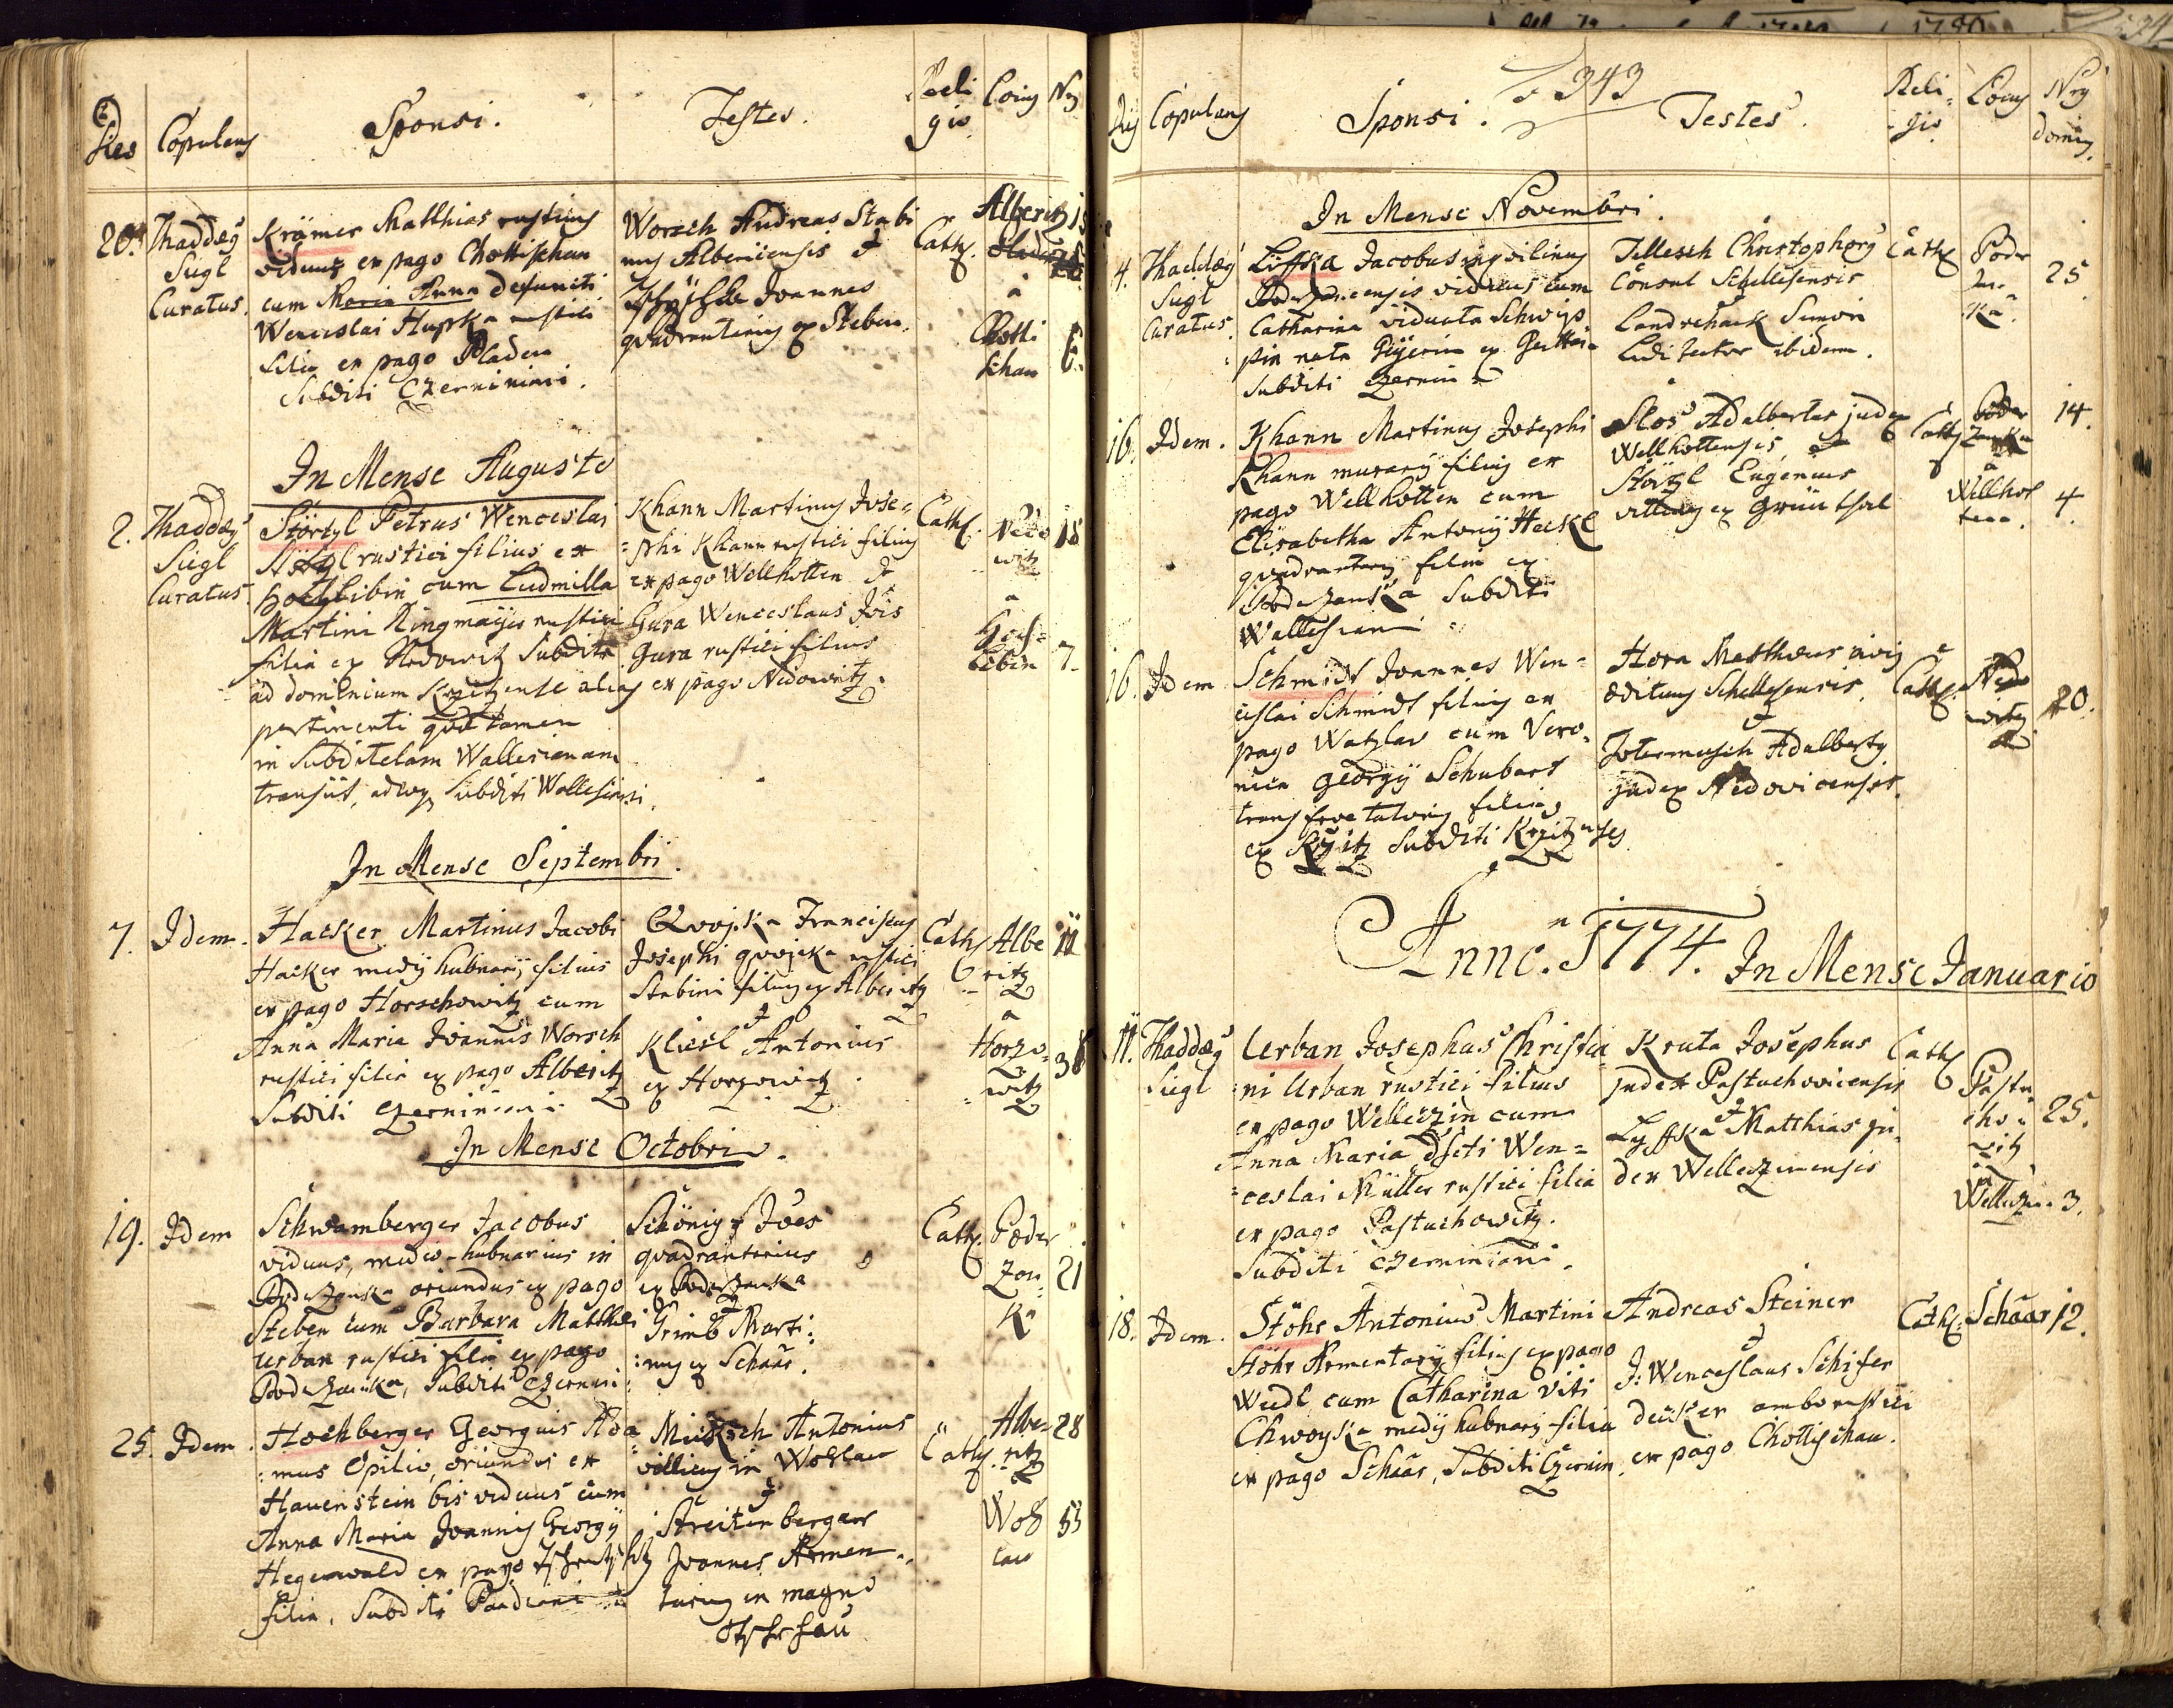 Dies Copulans Sponsi. Testes. Reli
gio. Locus Nrus
20. Thaddæus Siegl Curatus.
Krämer Matthias rusticus
viduus ex pago Chottischau
cum Maria Anna defuncti
Wenceslai Hupka rustici
filia ex pago Pladen
Subditi Czerniniani.
Worsch Andreas Stabi
nus Albericensis &
Joannes
quadrantarius ex Steben.
Cath.
Alberitz 15
Pladen
a
Chotti
schau 6.
In Mense Augusto
2. Thaddæus
Siegl
Curatus.
Störtzl Petrus Wenceslai
Störtzl rustici filius ex
Hochlibin cum Ludmilla
Martini Ringmaijer rustici
filia ex Nedowitz Subdita
ad dominium Krzitzense alias
pertinenti quæ tamen
in Subditelam Wallisianam
transiit, adeoque Subditi Wallisiani.
Khann Martinus Jose=
=phi Khann rustici filius
ex pago Wellhotten &
Gura Wenceslaus Jois
Gura rustici filius
ex pago Nedowitz.
Cath.
Nedo
witz 18
a
Hoch=
libin 7.
In Mense Septembri.
7. Idem.
Hacker Martinus Jacobi
Hacker medij hubnarij filius
ex pago Horschowitz cum
Anna Maria Joannis Worsch
rustici filia ex pago Alberitz
Subditi Czerniniani
Qvojka Franciscus
Josephi qvojcka rustici
Stabini filius ex Alberitz
&
Kliesl Antonius
ex Horzowitz.
Cath
Albe 11
ritz
a
Horzo=
witz
In Mense Octobri.
19. Idem
Schwamberger Jacobus
viduus, medio-hubnarius in
Poderzanka oriundus ex pago
Steben cum Barbara Matthei
Urban rustici filia ex pago
Poderzanka, Subditi Czernini:
Schönig Joes
quadrantarius
ex Poderzanka
&
Grimb Marti:
:nus ex Schaar.
Cath.
Poder
zan= 21
Ka
25. Idem.
Hochberger Georgius Ada
=mus Opilio, oriundus ex
Hauenstein bis viduus cum
Anna Maria Joannis Georgij
Hegenwald ex pago
filia, Subditi
Micksch Antonius
villicus in Wohlau
&
Streitenberger
Joannes Armen
tarius in magno
Cath
Albe= 28
ritz
Woh 53
lau
343
Dies Copulans Sponsi. Testes. Reli=
gio. Locus Nrus
domus.
In Mense Novembri.
4. Thaddæus
Siegl
Curatus.
Liffka Jacobus inquilinus
Poderzancensis viduus cum
Catharina viduata Schwip
pin nata Geyerin ex
Subditi Czernin
Tillesch Christophorus
Consul Schellesensis
Landrehack Simon
Ludi Rector ibidem.
Cath
Poder
zan= 25
ka.
16. Idem.
Khann Martinus Josephi
Khann murarij filius ex
pago Wellhotten cum
Elisabetha Antonij Heckl
quadrantarij filia ex
Poderzanka Subditi
Wallisiani
Slos Adalbertus judex
Wellhottensis &
Störtzl Eugenius
villicus ex Grünthal
Cath
Poder 14.
Zanka
a
Wellhot 4.
ten.
16. Idem
Schmidt Joannes Wen=
ceslai Schmidt filius ex
pago Watzlav cum Vero=
nica Georgij Schubert
filia
ex Krzitz Subditi Krzitzenses
Hora Matthæus civis
ædituus Schellesensis.
&
Adalbertus
judex Nedovicensis.
Cath.
Nedo
witz 20.
Anno. 1774. In Mense Januario
11. Thaddæus
Siegl
Urban Josephus Christia
=ni Urban rustici filius
ex pago Welleczin cum
Anna Maria dfcti Wen=
=ceslai Müller rustici filia
ex pago Pastuchowitz.
Subditi Czerniniani.
Kruta Josephus
judex Pastuchovicensis
&
Lyffka Matthias ju=
dex Welleczinensis
Cath
Pastu
cho= 25.
witz
a
Welleczin. 3.
18. Idem.
Stöhr Antonius Martini
Stöhr Armentarij filius ex pago
Wedl cum Catharina Viti
Chwoyka medij hubnarij filia
ex pago Schaar, Subditi Czernin.
Andreas Steiner
&
J: Wenceslaus Schifer
decker ambo rustici
ex pago Chottischau.
Cath. Schaar 12.